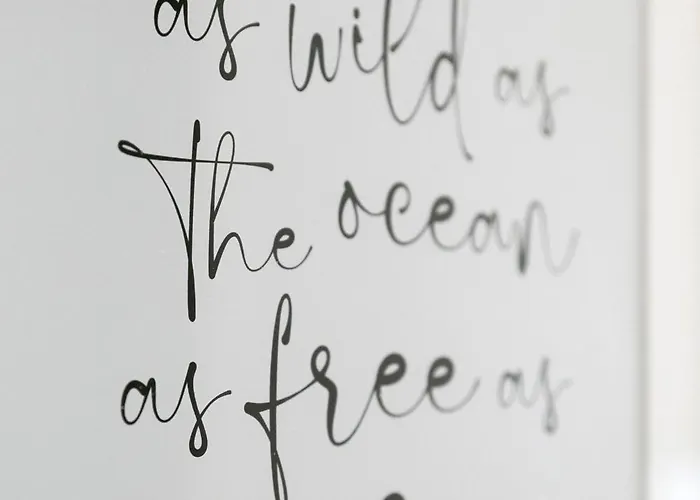 as wild as
The ocean
as free as